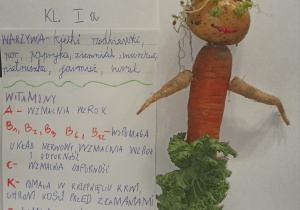 KL. I a
WARZYWA- kiełki rzodkiewki,
por, papryka, ziemniak, marchew,
pietruszka, jarmuż, burak
WITAMINY
A - WZMACNIA WZROK
B1, B2, B3, B6, B12 - WSPOMAGA
UKŁAD NERWOWY, WZMACNIA WZROK
I ODPORNOŚĆ
C - WZMACNIA ODPORNOŚĆ
K - POMAGA W KRZEPNIĘCIU KRWI,
CHRONI KOŚCI PRZED ZŁAMANIAMI